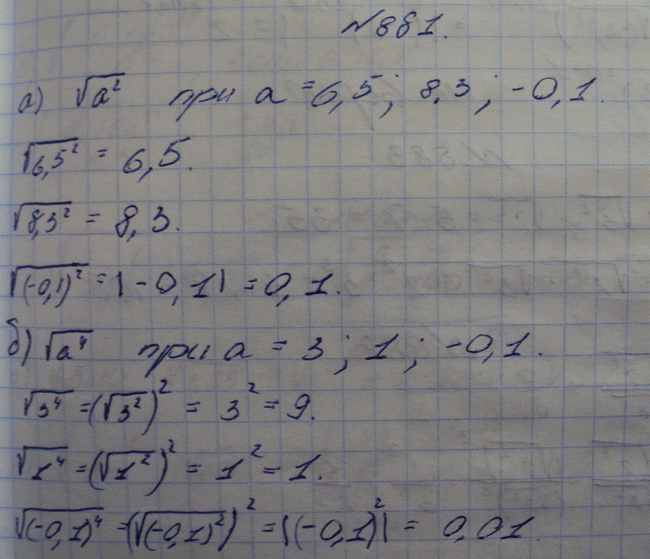 №881.
а) √a² при a = 6,5; 8,3; -0,1.
√6,5² = 6,5.
√8,3² = 8,3.
√(-0,1)² = |-0,1| = 0,1.
б) √a⁴ при a = 3; 1; -0,1.
√3⁴ = (√3²)² = 3² = 9.
√1⁴ = (√1²)² = 1² = 1.
√(-0,1)⁴ = (√(-0,1)²)² = |(-0,1)²| = 0,01.